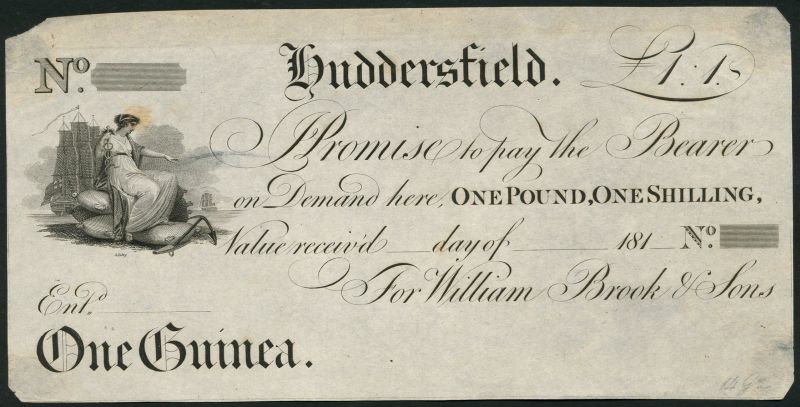 No. Huddersfield. £1:1:s
I Promise to pay the Bearer
on Demand here, ONE POUND, ONE SHILLING,
Value receiv'd ___ day of ______ 181_ No.
For William Brook & Sons
Entd.
One Guinea.